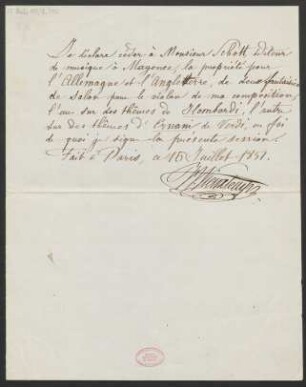 Je déclare céder à Monsieur Schott Editeur
de musique à Mayence, la propriété pour
l'Allemagne et l'Angleterre, de deux fantaisies
de Salon pour le violon de ma composition,
l'une sur des thèmes de I Lombardi, l'autre
sur des thèmes d'Ernani de Verdi, en foi
de quoi je signe la présente cession.
Fait à Paris, ce 16 Juillet 1851.